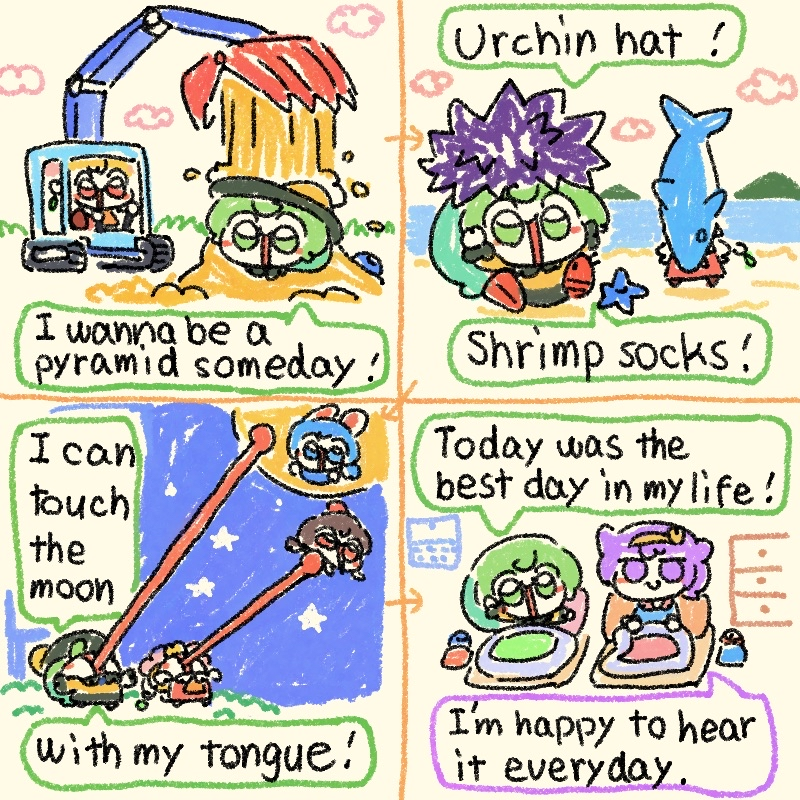 I wanna be a
pyramid someday!
Urchin hat !
Shrimp socks!
I can
touch
the
moon
with my tongue!
Today was the
best day in my life!
I'm happy to hear
it everyday.